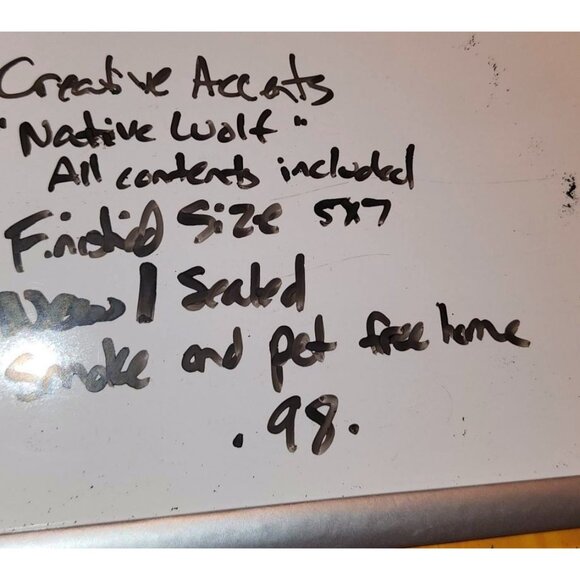 Creative Accents
"Native Wolf"
All contents included
Finishid Size 5x7
New / Sealed
Smoke and pet free home
.98.